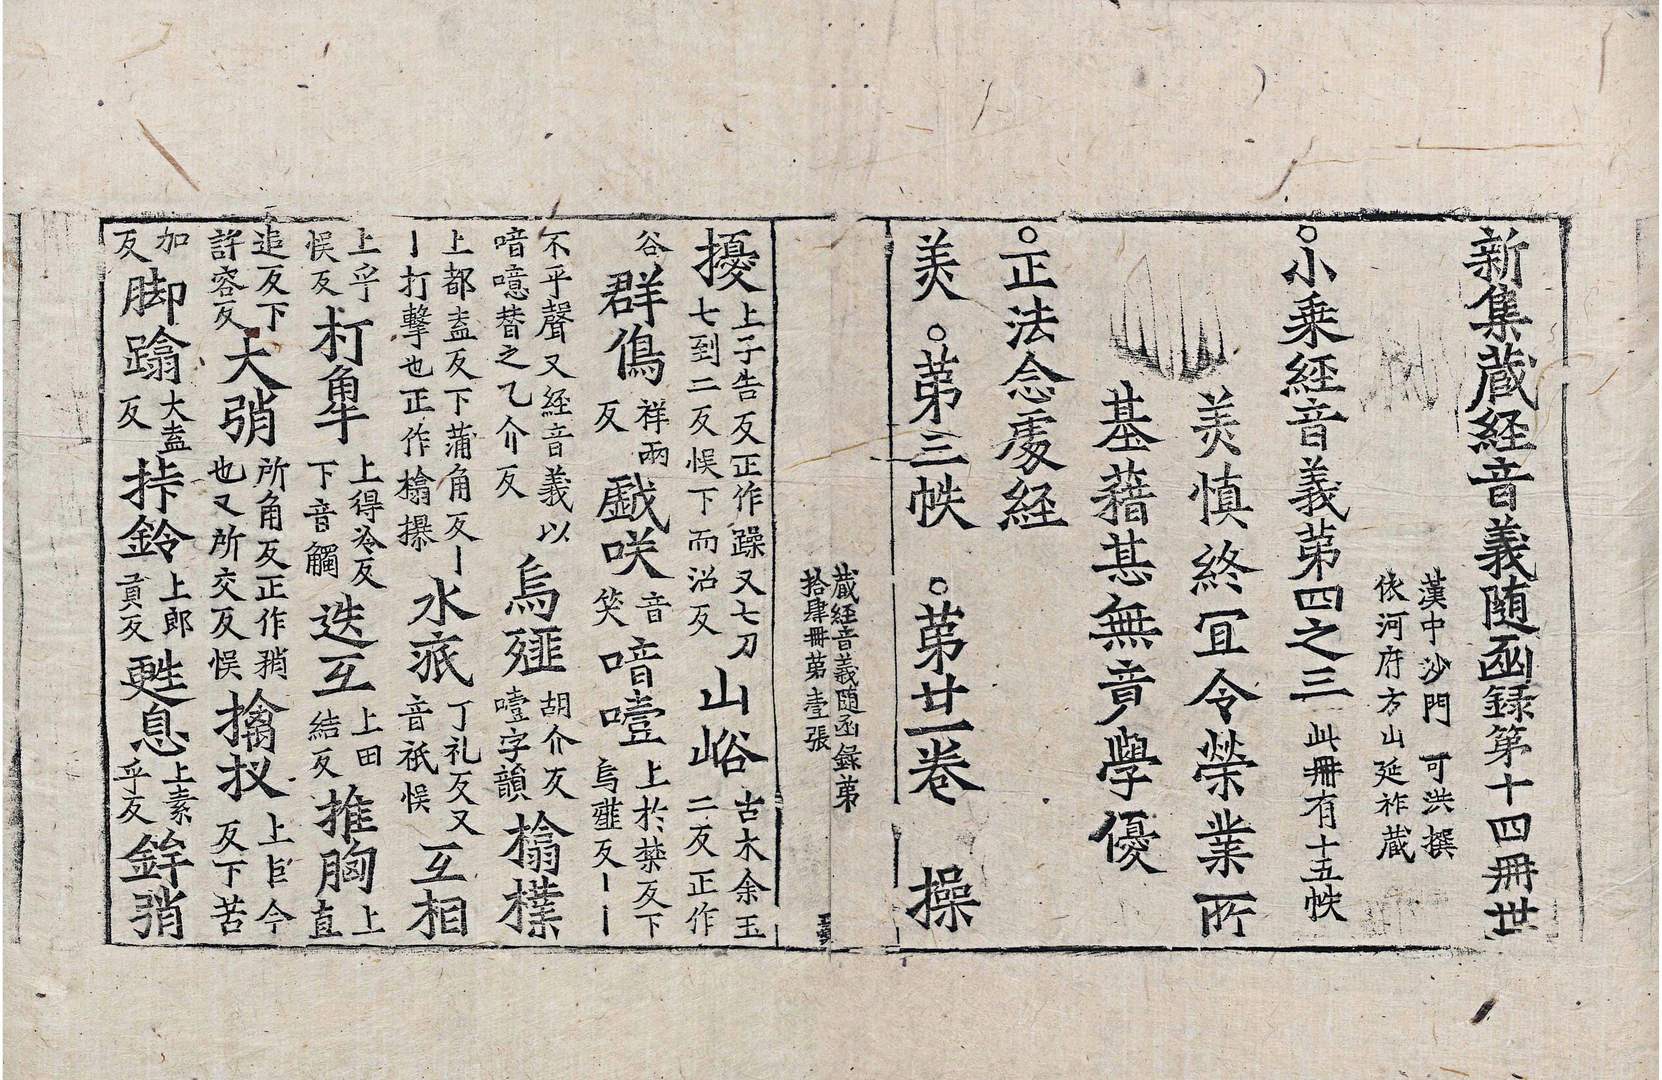 新集蔵経音義随函録第十四冊世
漢中沙門 可洪 撰
依河府方山延祚蔵
○小乗経音義第四之三 此冊有十五帙
羙慎終冝令榮業所
基藉甚無竟學優
○正法念䖏経
羙 ○苐三帙 ○苐廿一卷 操
蔵経音義随函録苐
拾肆冊第壹張
擾 上子告反正作躁又七刀
七到二反悮下而沼反 山峪 古木余玉
二反正作
谷 群鳥 祥兩
反 戱咲 音
笑 喑噎 上於禁反下
烏䪥反丨丨
不乎聲又経音義以
喑噫替之乙介反 烏殟 胡介反
噎字韻 㩉㩧
上都盍反下蒲角反丨
丨打擊也正作㩉㩧 水疧 丁礼反又
音祇悮 互相
上乎
悮反 打犎 上得冷反
下音觸 迭互 上田
結反 推胸 上
直
追反下
許容反 大弰 所角反正作矟
也又所交反悮 擒扠 上巨今
反下苦
加
反 脚蹹 大盍
反 挊鈴 上郎
貢反 甦息 上素
乎反 鉾弰